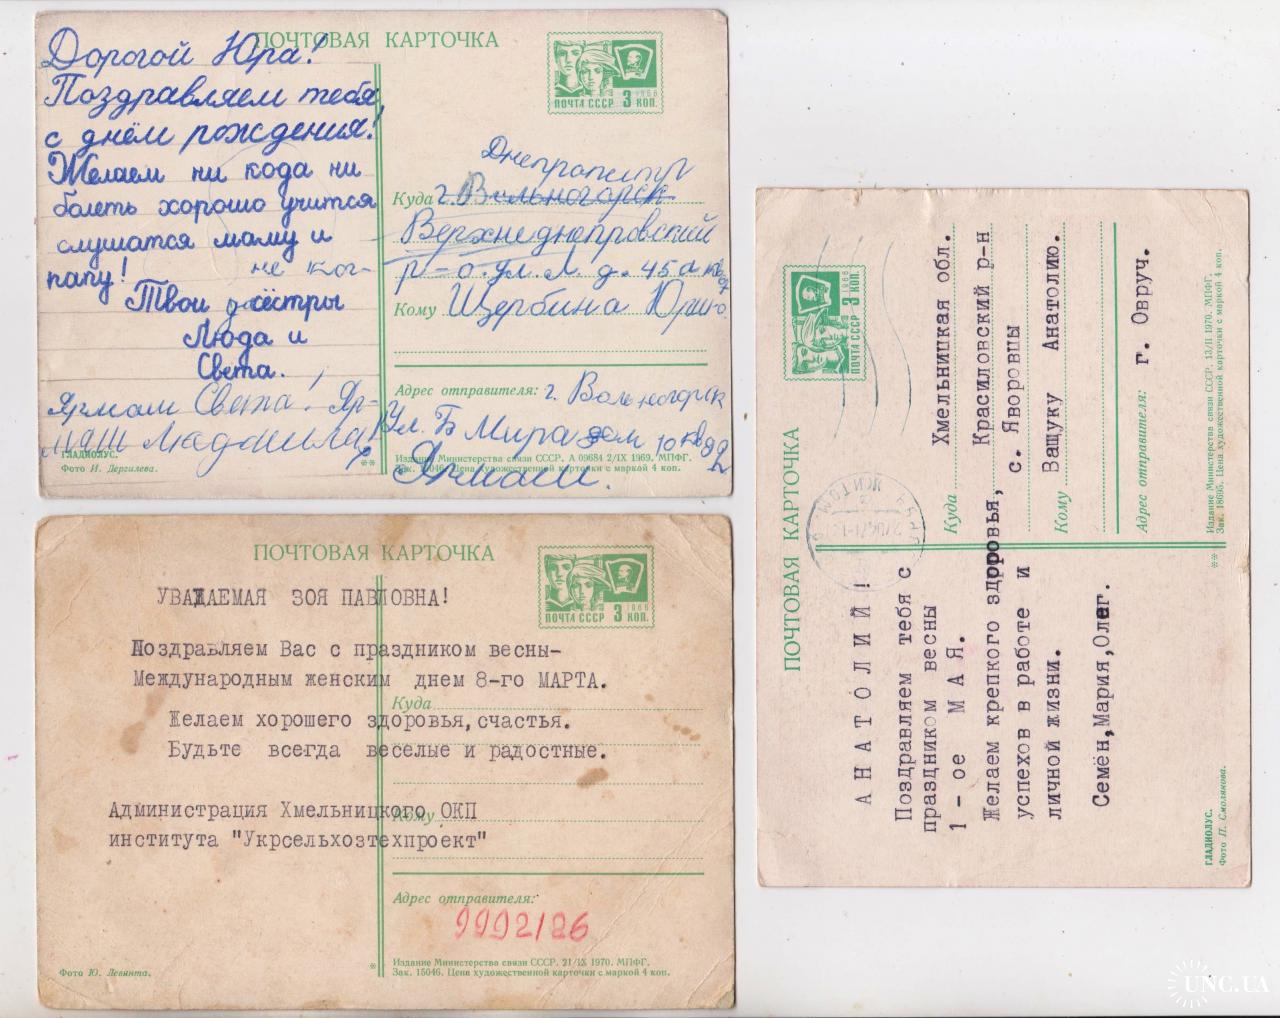 ПОЧТОВАЯ КАРТОЧКА
Дорогой Юра!
Поздравляем тебя,
с днём рождения!
Желаем ни кода ни
болеть хорошо учится
слушатся маму и
папу!
не ког-
Твои сёстры
Люда и
Света.
Ярмаш Света. Яр-
маш Людмила
ГЛАДИОЛУС.
Фото И. Дергилева.
1966
ПОЧТА СССР 3 КОП.
Куда г. Вольногорск
Верхнеднепровский
р-о. ул. Л. д. 45а кв
Кому Щербина Юрию
Адрес отправителя: г. Вольногорск
Ул. Б Мира дом 10 кв 92
Ярмаш.
Издание Министерства связи СССР. А 09684 2/IX 1969. МПФГ.
Зак. 15046. Цена художественной карточки с маркой 4 коп.
ПОЧТОВАЯ КАРТОЧКА
1966
ПОЧТА СССР 3 КОП.
УВАЖАЕМАЯ ЗОЯ ПАВЛОВНА!
Поздравляем Вас с праздником весны-
Международным женским днем 8-го МАРТА.
Желаем хорошего здоровья,счастья.
Будьте всегда веселые и радостные.
Администрация Хмельницкого ОКП
института "Укрсельхозтехпроект"
Куда
Кому
Адрес отправителя:
9992/26
Фото Ю. Левянта.
Издание Министерства связи СССР. 21/IX 1970. МПФГ.
Зак. 15046. Цена художественной карточки с маркой 4 коп.
ПОЧТОВАЯ КАРТОЧКА
1966
ПОЧТА СССР 3 КОП.
АНАТОЛИЙ!
Поздравляем тебя с
праздником весны
1 - ое МАЯ.
Желаем крепкого здоровья,
успехов в работе и
личной жизни.
Семён,Мария,Олег.
ГЛАДИОЛУС.
Фото П. Смолякова.
Куда Хмельницкая обл.
Красиловский р-н
с. Яворовцы
Кому Ващуку Анатолию.
Адрес отправителя: г. Овруч.
Издание Министерства связи СССР. 13/II 1970. МПФГ.
Зак. 18695. Цена художественной карточки с маркой 4 коп.
UNC.UA